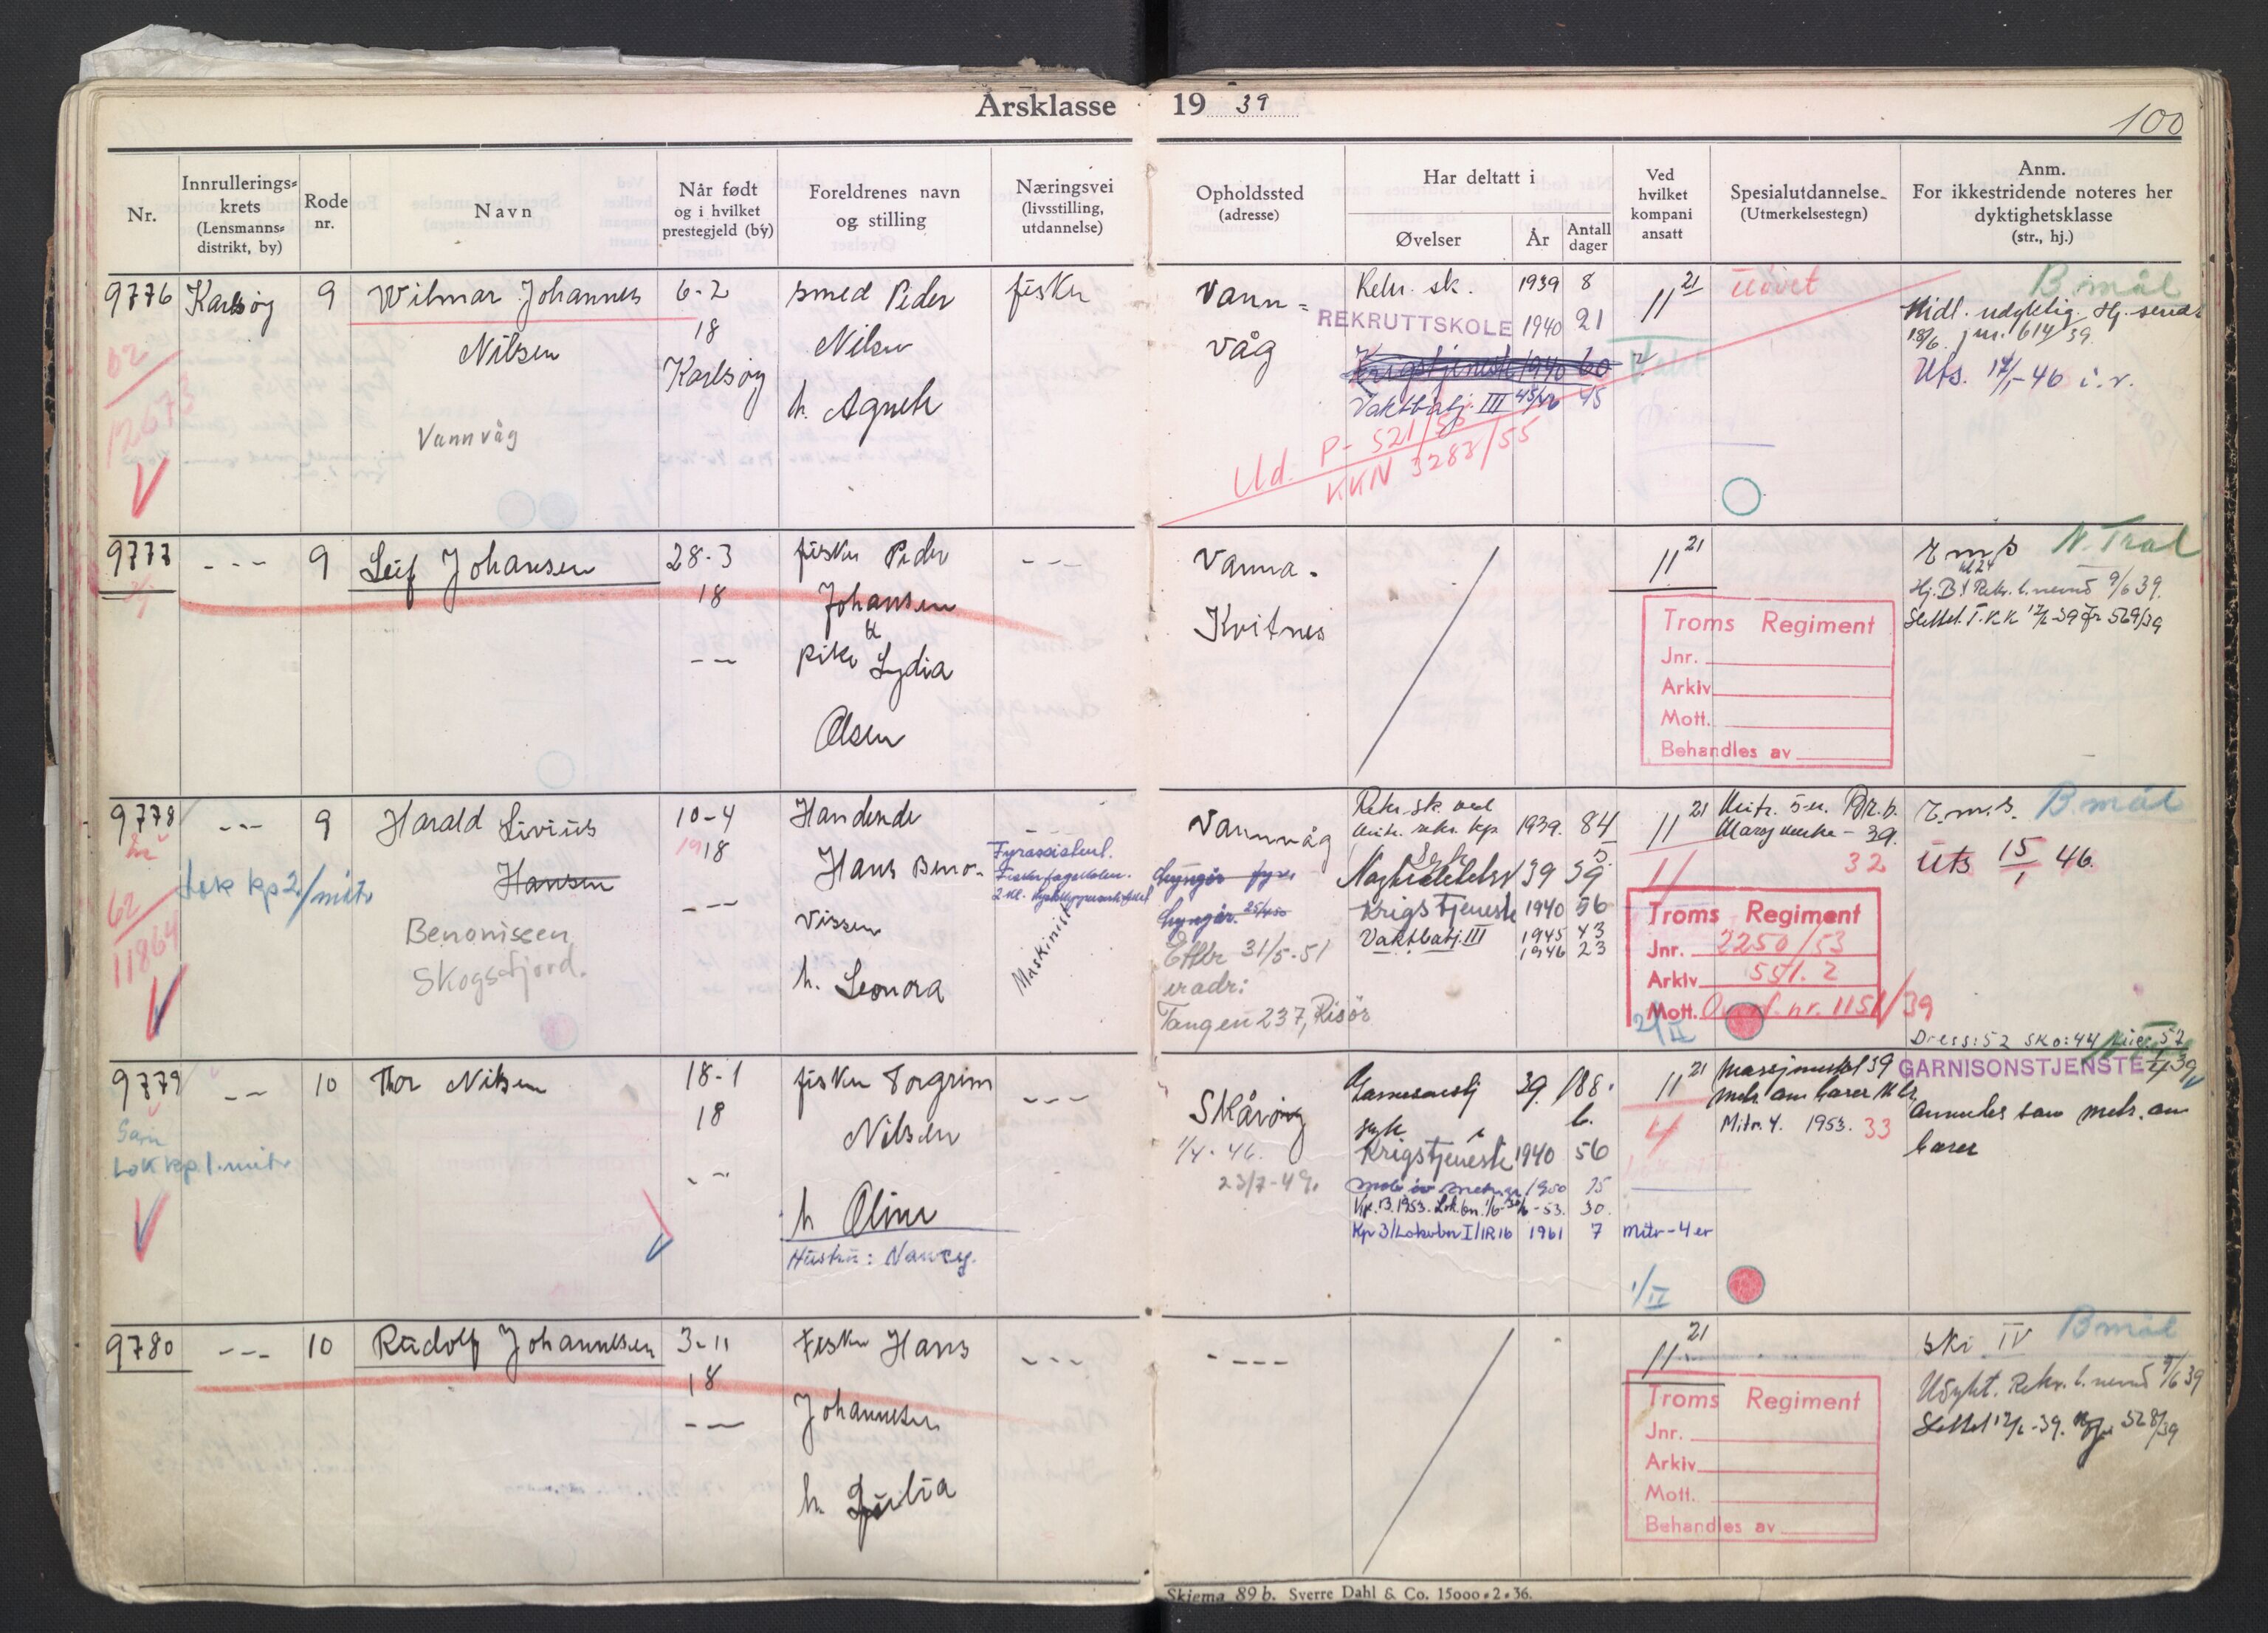 Årsklasse 19 39
100
Nr.
Innrullerings=
krets
(Lensmanns=
distrikt, by)
Rode
nr.
Navn
Når født
og i hvilket
prestegjeld (by)
Foreldrenes navn
og stilling
Næringsvei
(livsstilling,
utdannelse)
Opholdssted
(adresse)
Har deltatt i
Øvelser
År
Antall
dager
Ved
hvilket
kompani
ansatt
Spesialutdannelse.
(Utmerkelsestegn)
Anm.
For ikkestridende noteres her
dyktighetsklasse
(str., hj.)
9776
Karlsøy
9
Wilmar Johannes
Nilsen
Vannvåg
6-2
18
Karlsøy
smed Peder
Nilsen
h. Agneth
fisker
Vann=
våg
Rekr. sk. 1939 8
REKRUTTSKOLE 1940 21
Krigstjeneste 1940 60
Vaktbatj. III 45/46 45
11 21
Uøvet
B.mål
Midl. udyktig. Hj. senda
18/6. jnr. 614/39.
Uts. 17/1-46 i.r.
Ud. P- 521/55
KKN 3283/55
62
12673
9777
---
9
Leif Johansen
28-3
18
--
fisker Peder
Johansen
pike Lydia
Olsen
---
Vanna.
Kvitnes
11 21
Troms Regiment
Jnr.
Arkiv
Mott.
Behandles av
N.Tral
Hj. B. Rekr. b.nemd 9/6 39.
Slettet T.KK 17/6-39 Jr 569/39
9778
---
9
Harald Livius
Hansen
Benonissen
Skogsfjord.
Lok kp 2/mitr
62
11864
10-4
1918
---
Handlende
Hans Beno-
nissen
h. Leonora
Fyrassistent.
Fiskerfagskolen.
Maskinist
Vannvåg
Lyngør fyr.
Lyngør. 25/4 50
Etter 31/5-51
er adr:
Tangen 237, Risør
Rekr. sk. ved
mitr. rekr. kp. 1939. 84
Nøytralitetsv 39 59
Krigstjeneste 1940 56
Vaktbatj. III 1945 43
1946 23
11 21
11
Marsj merke - 39.
32
Troms Regiment
Jnr. 2250/53
Arkiv 551.2
Mott. nr. 1151/39
2/II
B.mål
Uts 15/1 46.
Dress: 52 sko: 44 lue: 57
9779
---
10
Thor Nilsen
Lok kp 1. mitr
18-1
18
--
fisker Torgrim
Nilsen
h Oline
Hustru: Nancy.
---
Skårøy
1/4-46.
23/7-49.
Garnisonstj 39. 188.
syk 6.
Krigstjeneste 1940 56
1950 15
Vp. 13. 1953. Lok.bn. 1/6-30/6-53. 30.
Kp 3/Lokvbn I/IR16 1961 7 mitr-4er
11 21
4
Marsjmerket 39
Mitr. 4. 1953. 33
1/II
GARNISONSTJENSTE
Anmeldes som
bærer
9780
---
10
Rudolf Johannesen
3-11
18
---
Fisker Hans
Johannesen
h. Julia
---
----
11 21
Troms Regiment
Jnr.
Arkiv
Mott.
Behandles av
ski IV
B mål
Udykt. Rekr. b. nemd 9/6 39
Slettet 17/6-39. 528/39
Skjema 89 b. Sverre Dahl & Co. 15000•2•36.